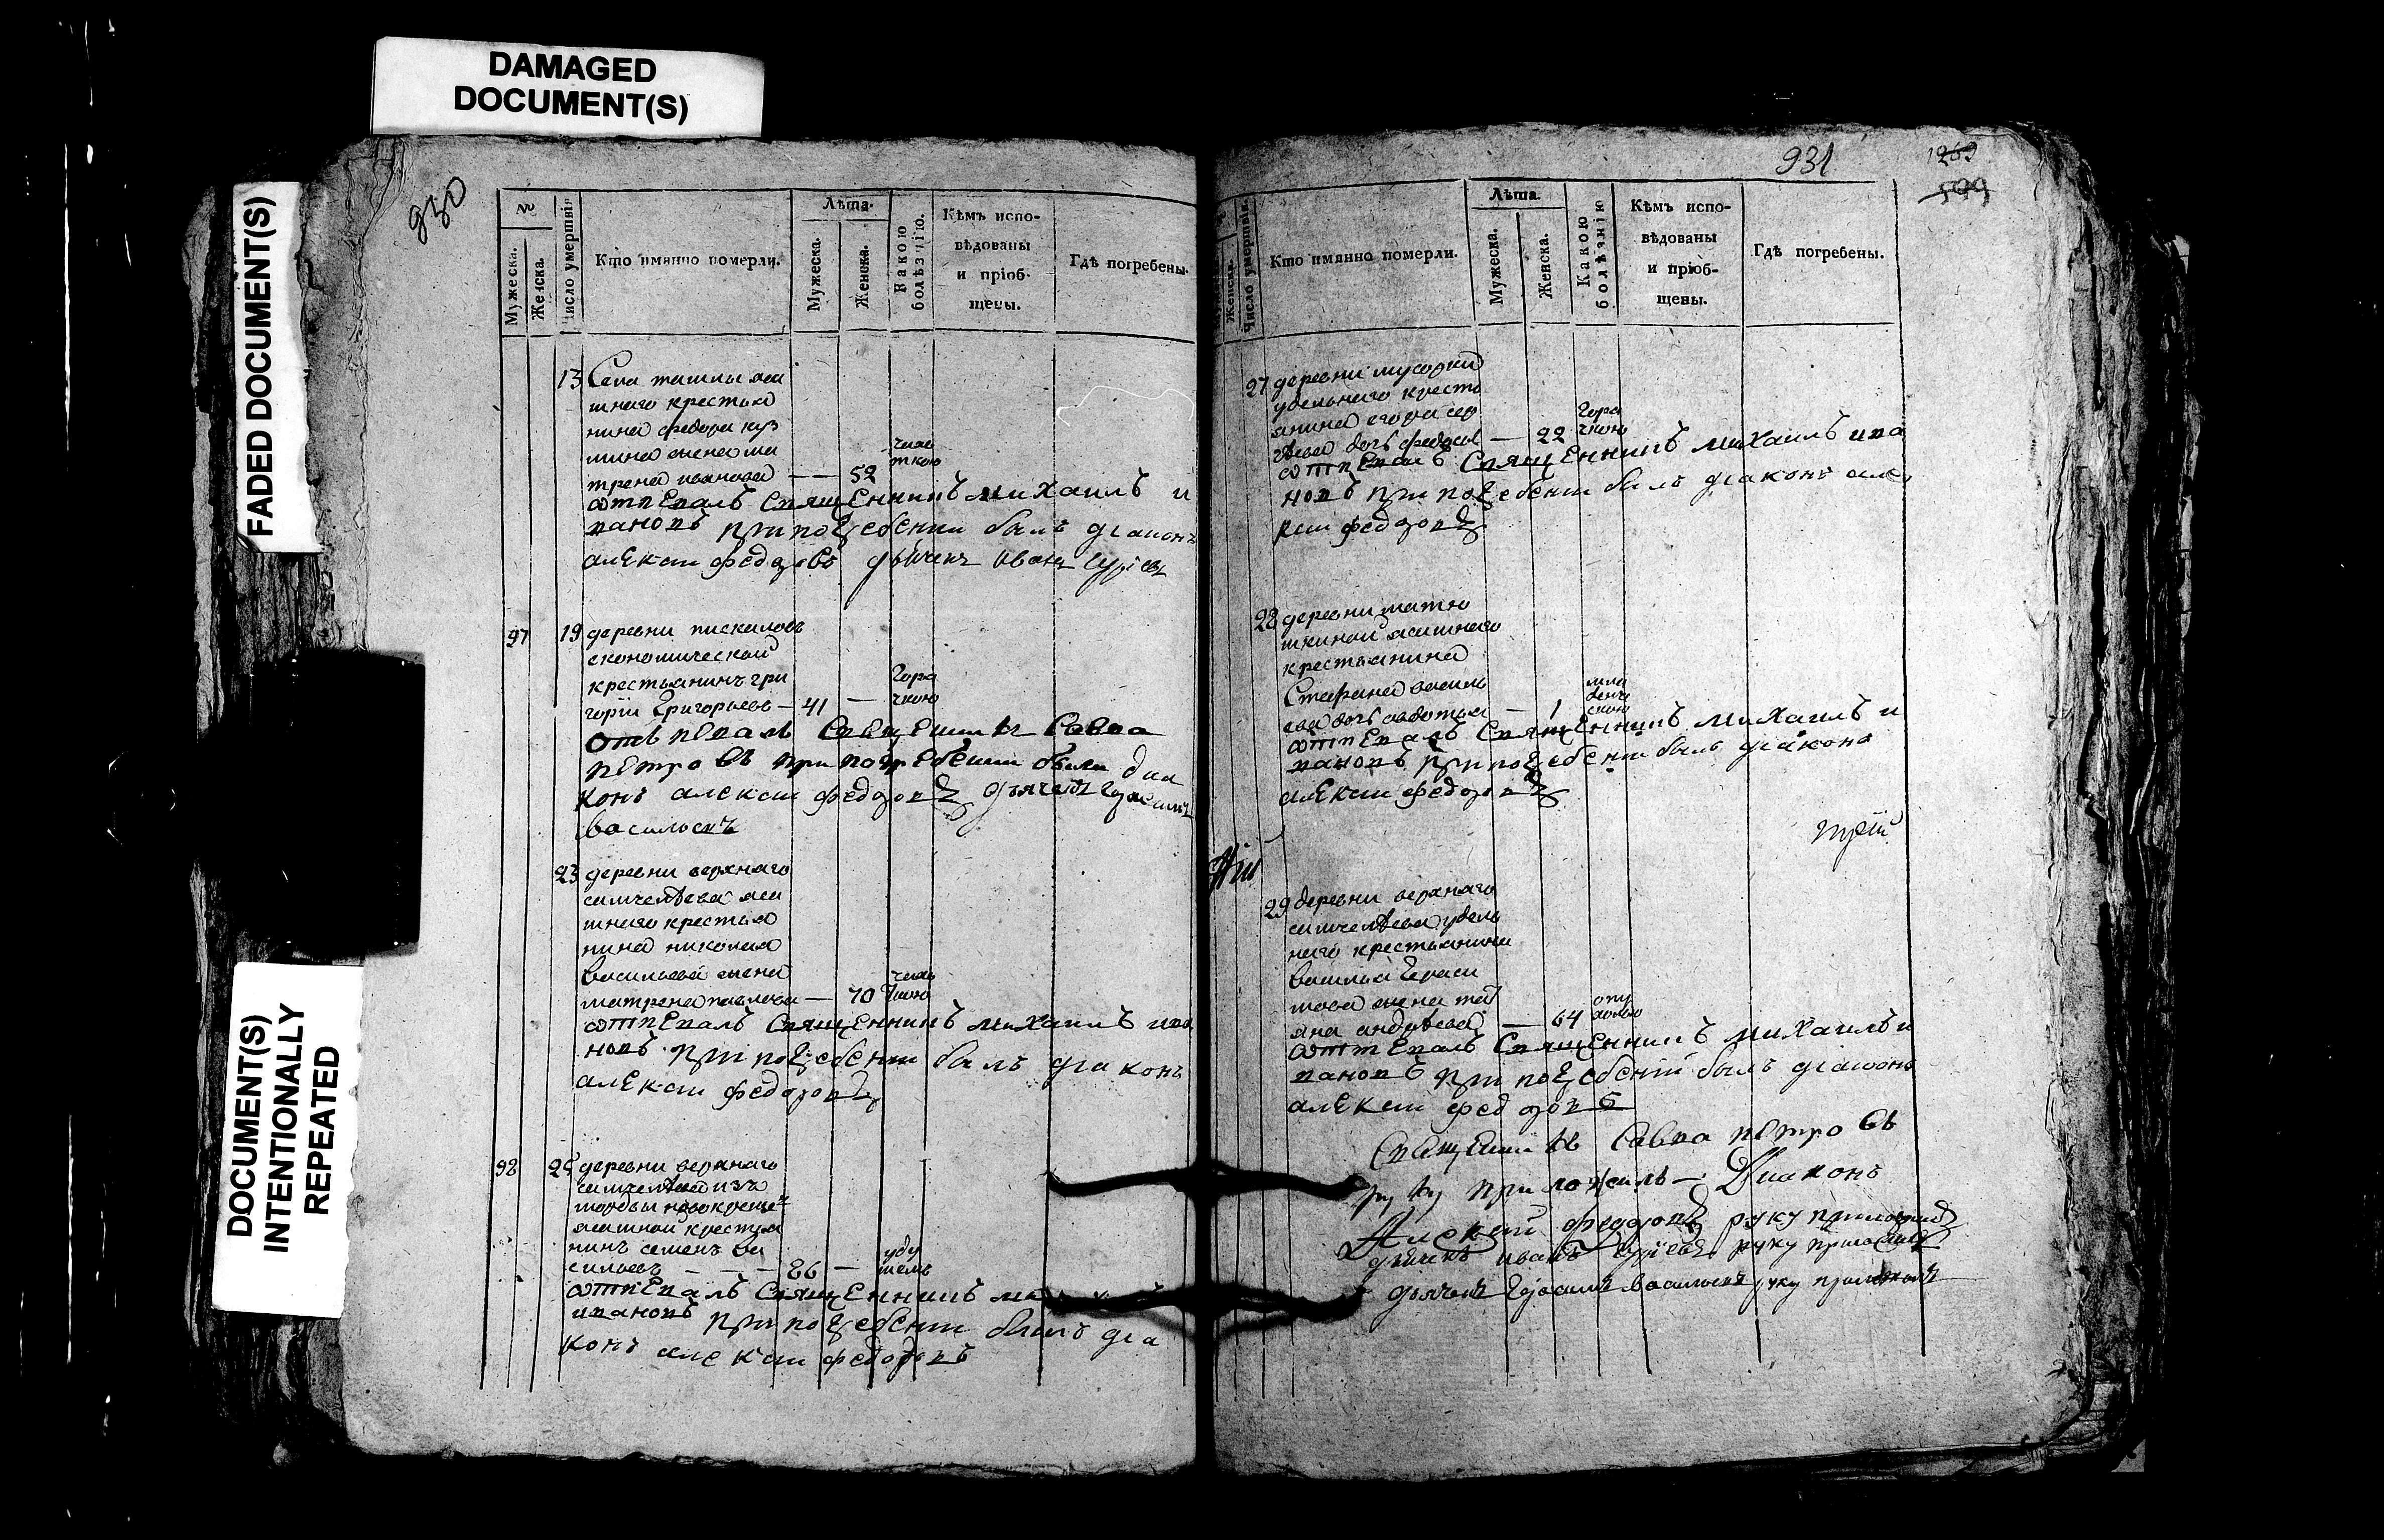 DAMAGED
DOCUMENT(S)
FADED DOCUMENT(S)
DOCUMENT(S)
INTENTIONALLY
REPEATED
930
№
Мужеска.
Женска.
Число умершнія
Кто имянно померли.
Лѣта.
Мужеска.
Женска.
Какою
болѣзнію.
Кѣмъ испо-
вѣдованы
и пріоб-
щены.
Гдѣ погребены.
13 Села ташлы яса
шнаго крестья
нина федора куз
мина жена ма
трена иванова — — 52
отпевалъ Священникъ михаилъ и
вановъ при погребении былъ диаконъ
алексеи федоровъ дьячекъ иванъ
97 19 деревни пискаловъ
економическои
крестьянинъ гри
гории григорьевъ — 41 — горя
чкою
отпевалъ Савва
петровъ при погребении были диа
конъ алексеи федоровъ дьячекъ
васильевъ
23 деревни верхнаго
яса
шнаго крестья
нина николая
васильева жена
матрена павлова — 70
отпевалъ Священникъ михаилъ ива
новъ при погребении былъ диаконъ
алексеи федоровъ
98 25 деревни верхнаго
изъ
ясашнои крестья
нинъ семенъ ва
сильевъ — — — 86 —
отпевалъ Священникъ
ивановъ при погребении былъ диа
конъ алексеи федоровъ
931
1269
599
Женска.
Число умершнія.
Кто имянно померли.
Лѣта.
Мужеска.
Женска.
Какою
болѣзнію
Кѣмъ испо-
вѣдованы
и пріоб-
щены.
Гдѣ погребены.
27 деревни мусорки
удельнаго кресть
янина егора
дочь — 22 горя
чкою
отпевалъ Священникъ михаилъ ива
новъ при погребении былъ диаконъ але
ксеи федоровъ
28 деревни матю
шкинои ясашнаго
крестьянина
Стефана василь
ева дочь авдотья — 1 мла
денче
скою
отпевалъ Священникъ михаилъ и
вановъ при погребении былъ диаконъ
алексеи федоровъ
29 деревни верхнаго
удель
наго крестьянина
василья гераси
мова жена тат
яна андреева — 64 опу
холью
отпевалъ Священникъ михаилъ и
вановъ при погребении былъ диаконъ
алексеи федоровъ
Савва петровъ
руку приложилъ — Диаконъ
Алексеи федоровъ руку приложилъ
дьячекъ иванъ руку приложилъ
дьячекъ васильевъ руку приложилъ